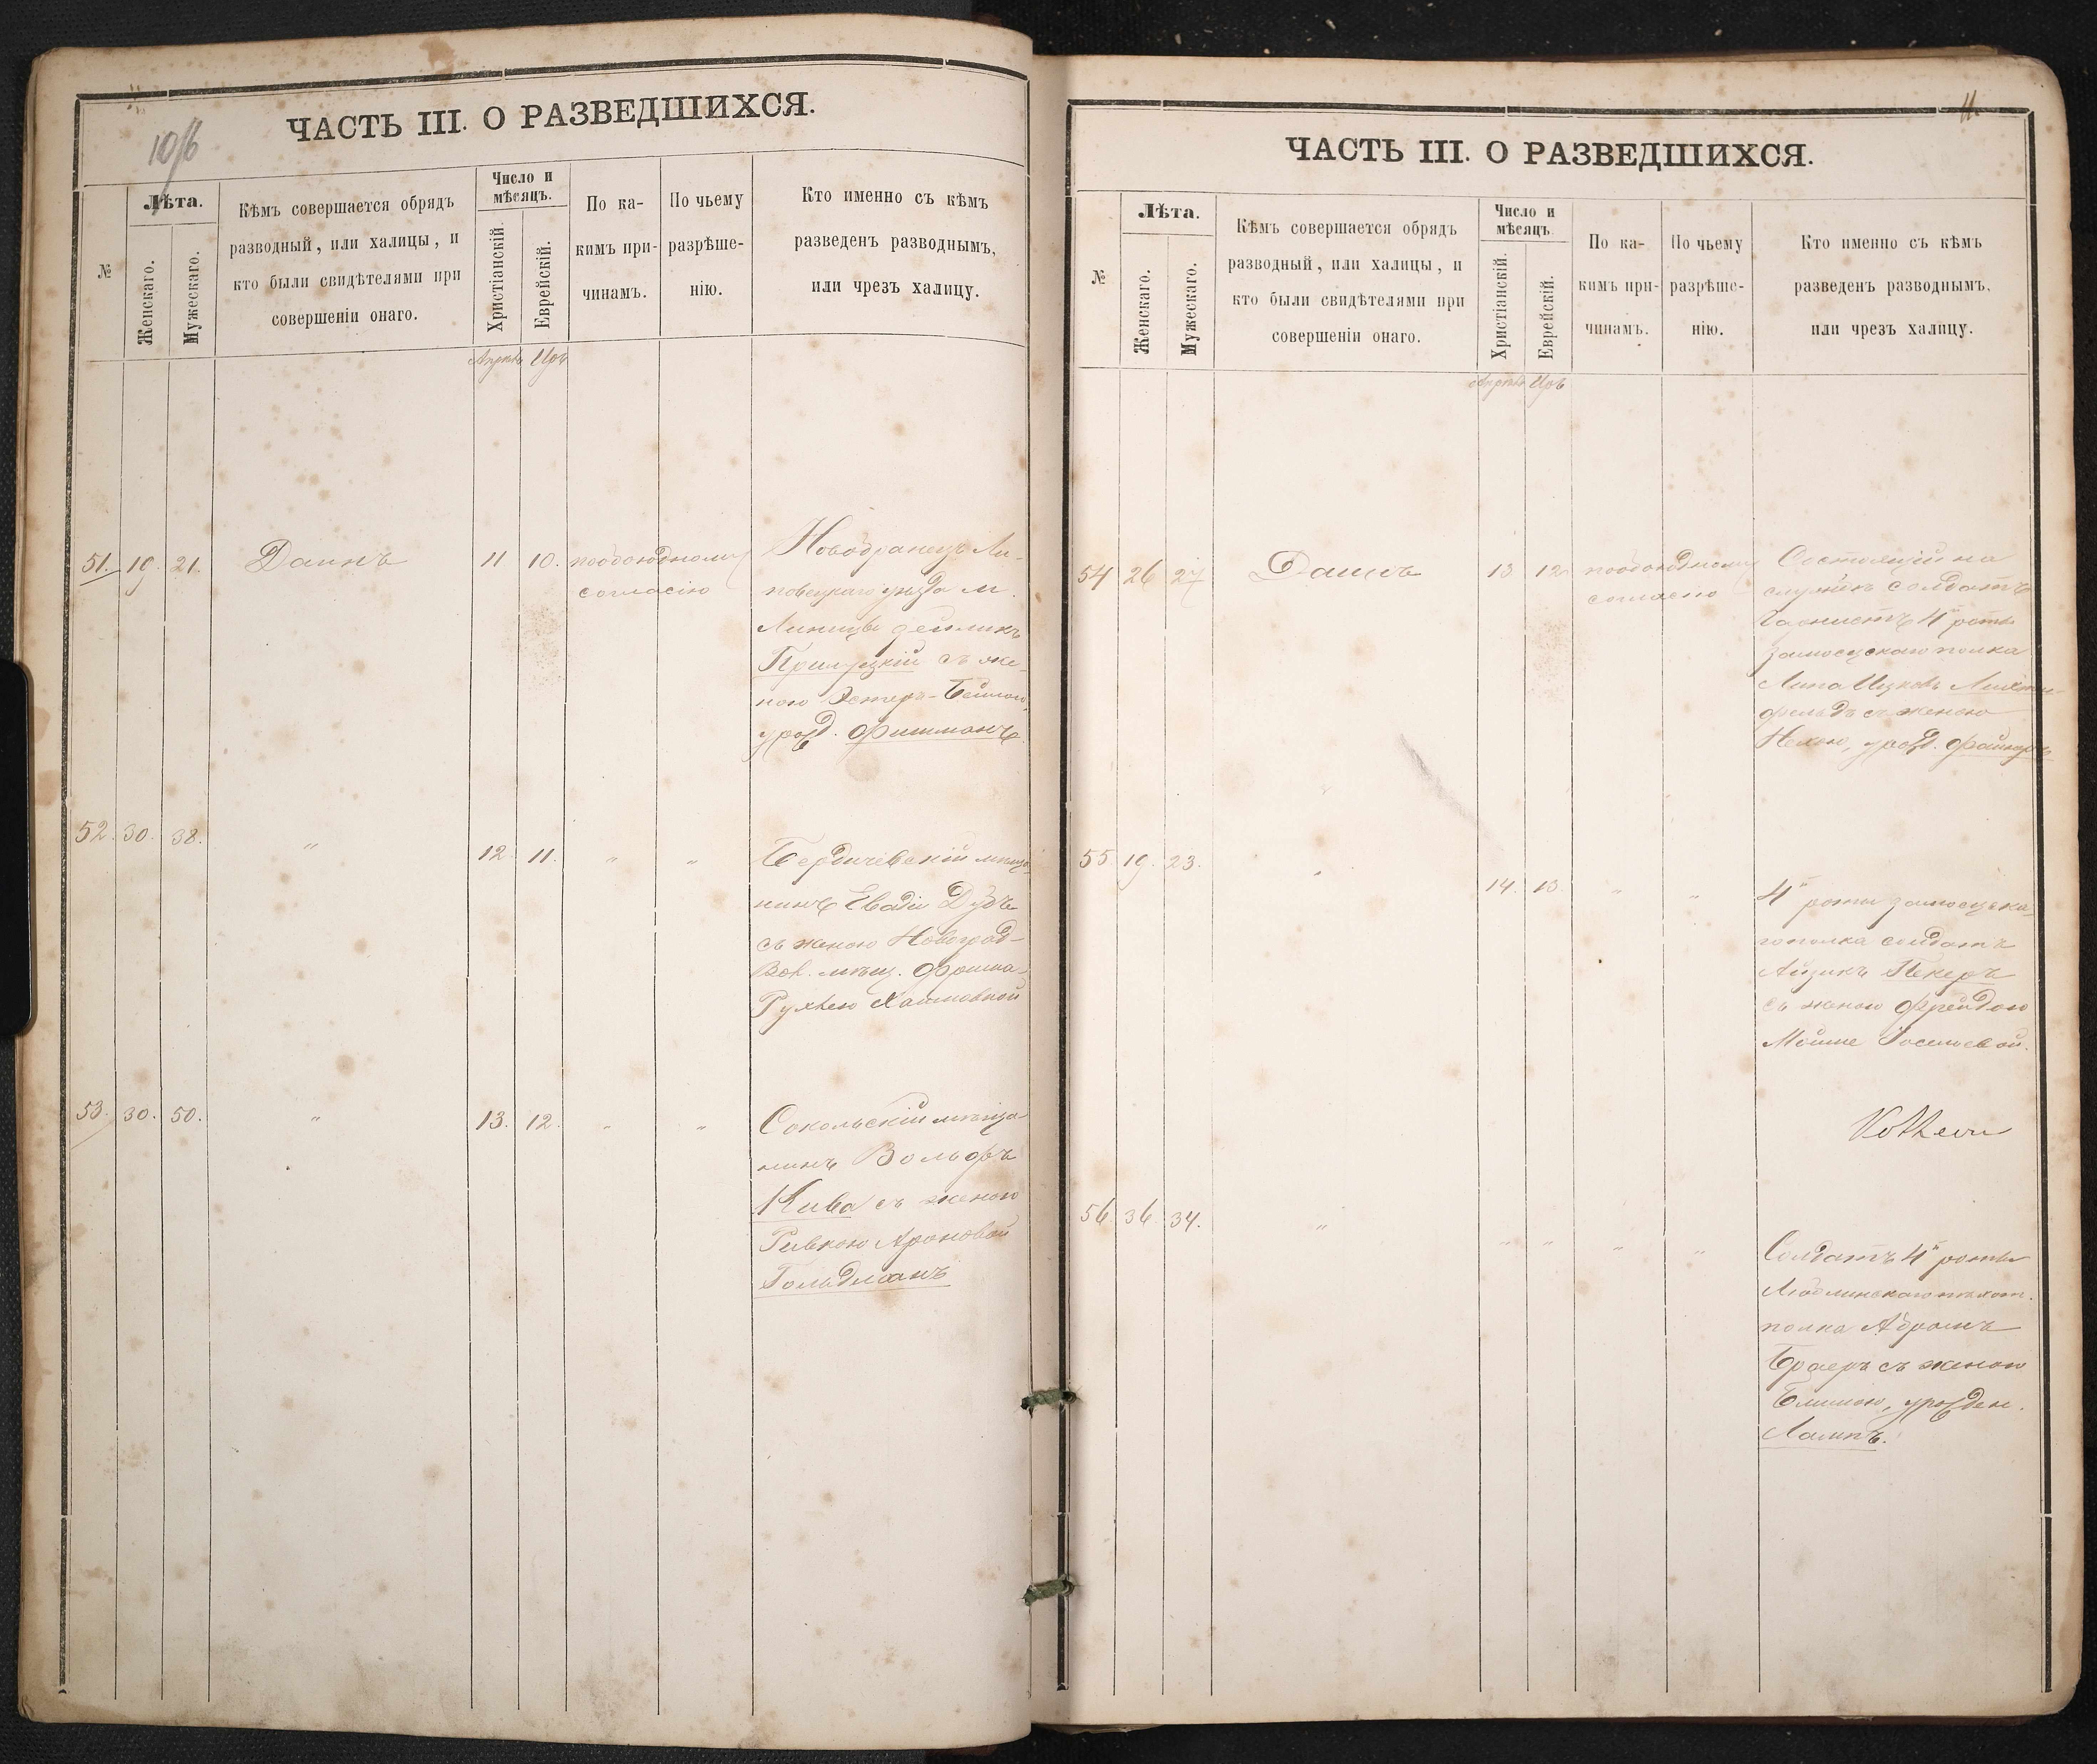 10/б
ЧАСТЬ III. О РАЗВЕДШИХСЯ.
№
Лѣта.
Женскаго.
Мужескаго.
Кѣмъ совершается обрядъ
разводный, или халицы, и
кто были свидѣтелями при
совершеніи онаго.
Число и
мѣсяцъ.
Христіанскій.
Еврейскій.
По ка-
кимъ при-
чинамъ.
По чьему
разрѣше-
нію.
Кто именно съ кѣмъ
разведенъ разводнымъ,
или чрезъ халицу.
Апрѣль Iіръ
51. 19. 21.
11 10.
пообоюдному
согласію
Новобранецъ Ли-
повецкаго уѣзда м.
Линицы
Прилуцкій съ же-
ною Эстеръ-Бейлою,
урозд. Фишманъ
52. 30. 38. " 12. 11. " "
Бердичевскій мѣща-
нинъ Евадіи Дубъ
съ женою Новоград-
Вол. мѣщ. Фрима-
Рухлею Хаимовной
53. 30. 50. " 13. 12. " "
Сокольскій мѣща-
нинъ Вольфъ
Кива съ женою
Ривкою Ароновой
Гольдманъ
11.
ЧАСТЬ III. О РАЗВЕДШИХСЯ.
№
Лѣта.
Женскаго.
Мужескаго.
Кѣмъ совершается обрядъ
разводный, или халицы, и
кто были свидѣтелями при
совершеніи онаго.
Число и
мѣсяцъ
Христіанскій.
Еврейскій.
По ка-
кимъ при-
чинамъ.
По чьему
разрѣше-
нію.
Кто именно съ кѣмъ
разведенъ разводнымъ,
или чрезъ халицу.
Апрѣль Iіръ
54 26 27
13 12
пообоюдному
согласію
Состоящій на
службѣ солдатъ
Горнистъ 4й роты
Замосцскаго полка
Липа Ицковъ
фельдъ съ женою
Нехою, урозд.
55 19. 23. " 14. 13. " "
4й роты Замосцска-
го полка солдатъ
Айзикъ Пекеръ
съ женою Фрейдою
Мойше Іоселевой.
56 36 34. " " " " "
Солдатъ 4й роты
Люблинскаго пѣхот.
полка Абрамъ
съ женою
Блимою, урозден.
Лампъ.